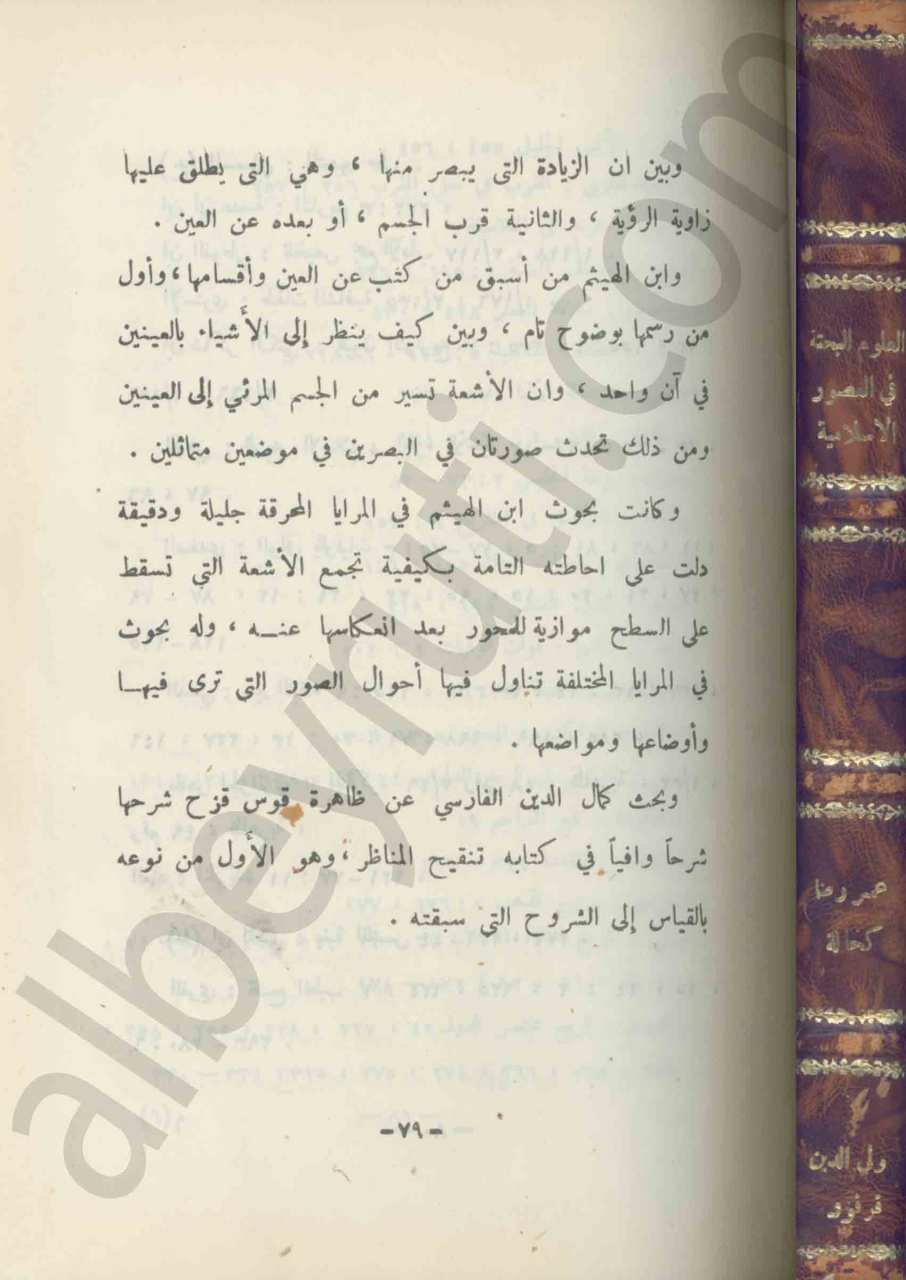 وبين ان الزيادة التى يبصر منها ، وهي التى يطلق عليها
زاوية الرؤية ، والثانية قرب الجسم ، أو بعده عن العين .
وابن الهيثم من أسبق من كتب عن العين وأقسامها ، وأول
من رسمها بوضوح تام ، وبين كيف ينظر إلى الأشياء بالعينين
في آن واحد ، وان الأشعة تسير من الجسم المرئي إلى العينين
ومن ذلك تحدث صورتان في البصرين في موضعين متماثلين .
وكانت بحوث ابن الهيثم في المرايا المحرقة جليلة ودقيقة
دلت على احاطته التامة بكيفية تجمع الأشعة التي تسقط
على السطح موازية للمحور بعد انعكاسها عنه ، وله بحوث
في المرايا المختلفة تناول فيها أحوال الصور التي ترى فيها
وأوضاعها ومواضعها .
وبحث كمال الدين الفارسي عن ظاهرة قوس قزح شرحها
شرحاً وافياً في كتابه تنقيح المناظر ، وهو الأول من نوعه
بالقياس إلى الشروح التي سبقته .
- ٧٩ -
العلوم البحتة
في العصور
الاسلامية
عمر رضا
كحالة
ولي الدين
فرفور
albeyruti.com